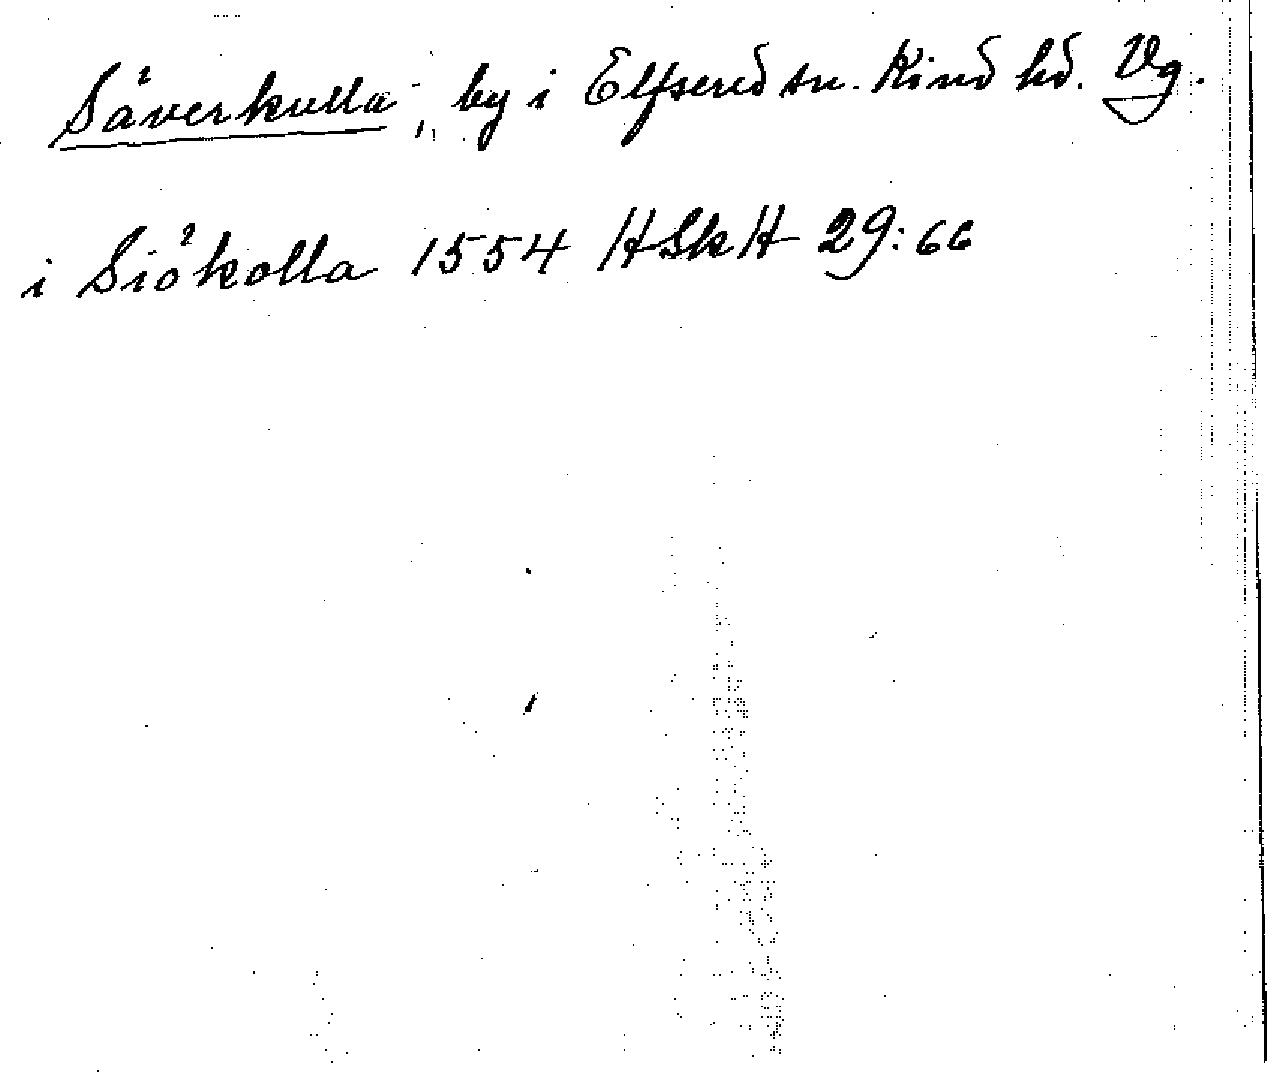 Säverkulla, by i Elfsered sn. Kind hd. Vg.
i Siökolla 1554 HSkH 29:66